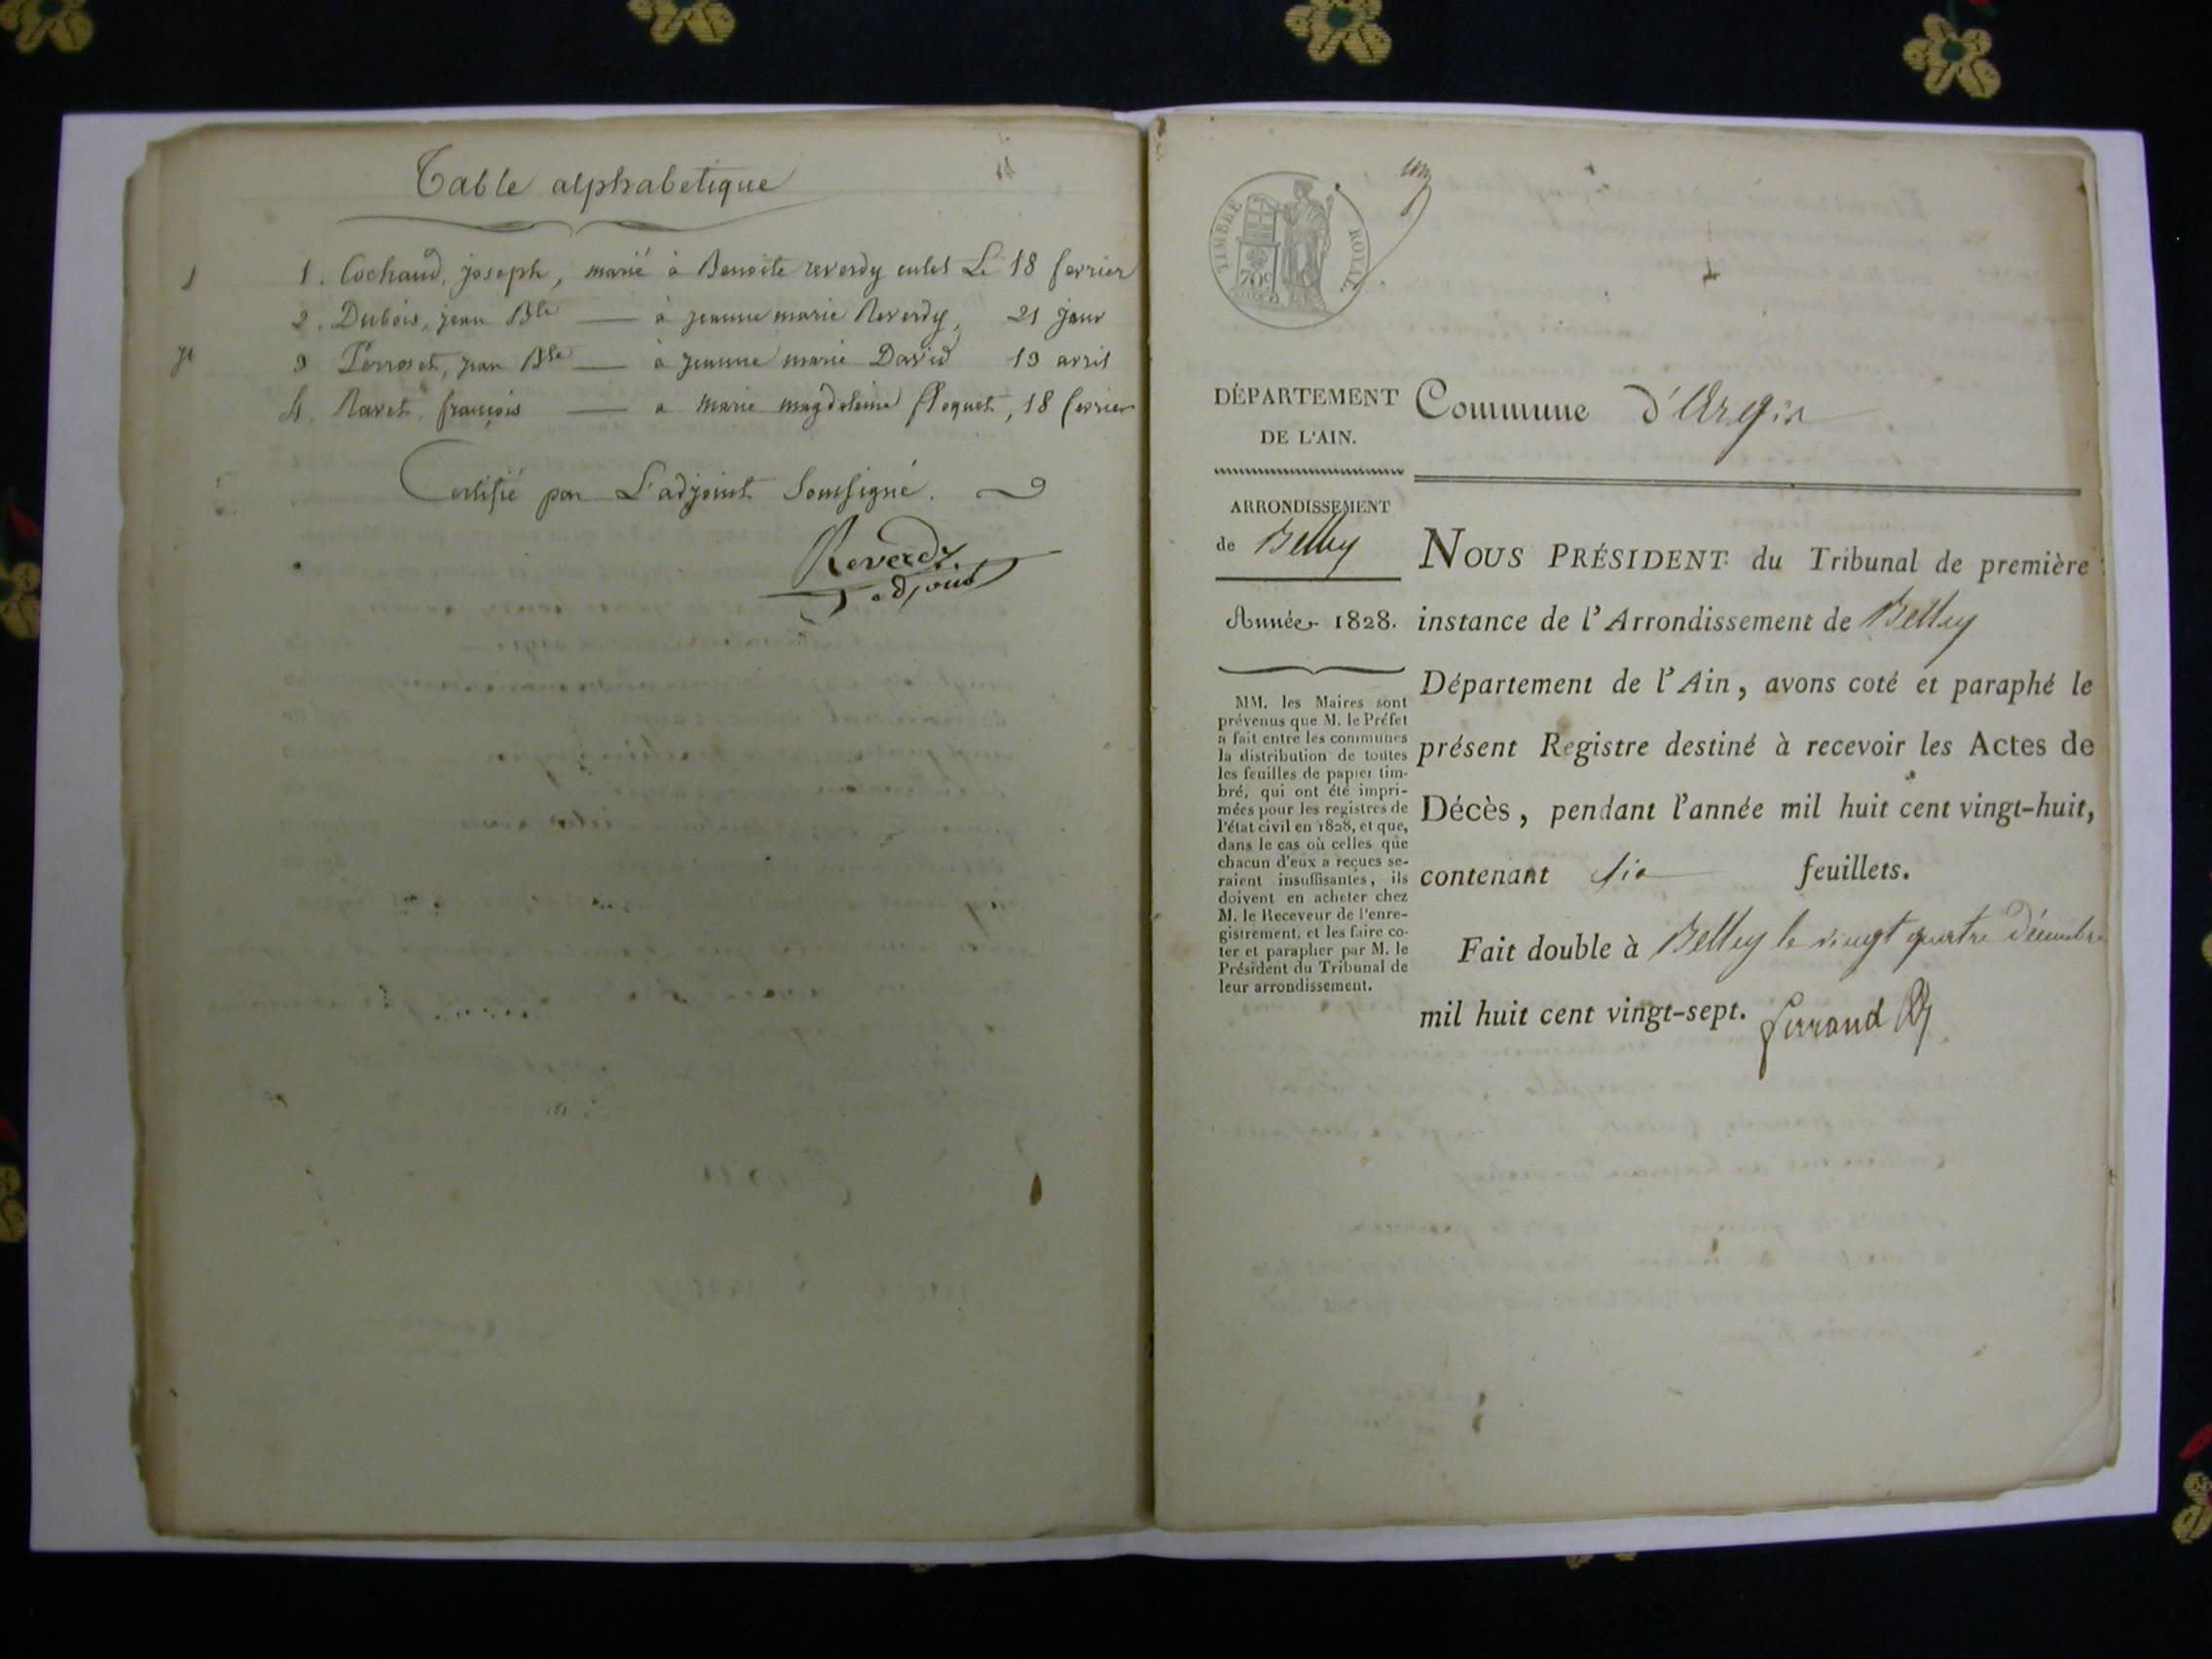 Table alphabetique
1. Cochaud, joseph, marié à Benoite reverdy cutet Le 18 fevrier
2. Dubois, jean Bte — à jeanne marie Reverdy, 21 janv
3 Perroset, jean Bte — à jeanne marie David 19 avril
4. Ravet, françois — a marie magdeleine floquet, 18 fevrier
Certifié par L'adjoint Soussigné.
Reverdy
adjoint
TIMBRE ROYAL
70c
DÉPARTEMENT
DE L'AIN.
ARRONDISSEMENT
de Belley
Année 1828.
MM. les Maires sont
prévenus que M. le Préfet
a fait entre les communes
la distribution de toutes
les feuilles de papier tim-
bré, qui ont été impri-
mées pour les registres de
l'état civil en 1828, et que,
dans le cas où celles que
chacun d'eux a reçues se-
raient insuffisantes, ils
doivent en acheter chez
M. le Receveur de l'enre-
gistrement, et les faire co-
ter et parapher par M. le
Président du Tribunal de
leur arrondissement.
Commune d'Argis
NOUS PRÉSIDENT du Tribunal de première
instance de l'Arrondissement de Belley
Département de l'Ain, avons coté et paraphé le
présent Registre destiné à recevoir les Actes de
Décès, pendant l'année mil huit cent vingt-huit,
contenant six feuillets.
Fait double à Belley le vingt quatre Décembre
mil huit cent vingt-sept. Ferrand